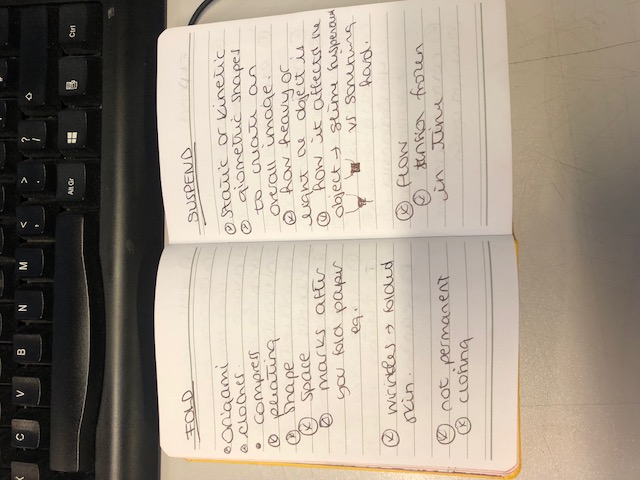 FOLD
Origami
clothes
compress
pleating
Shape
Space
marks after
you fold paper
eg.
wrinkles → folded
skin.
not permanent
closing
SUSPEND
Static or kinetic
giometric shapes
to create an
overall image.
how heavy or
light an object is
how it affects the
object → slime suspended
vs something
hard.
flow
tension frozen
in time
Ctrl
Alt Gr
?
/
>
.
<
,
M
N
B
V
C
X